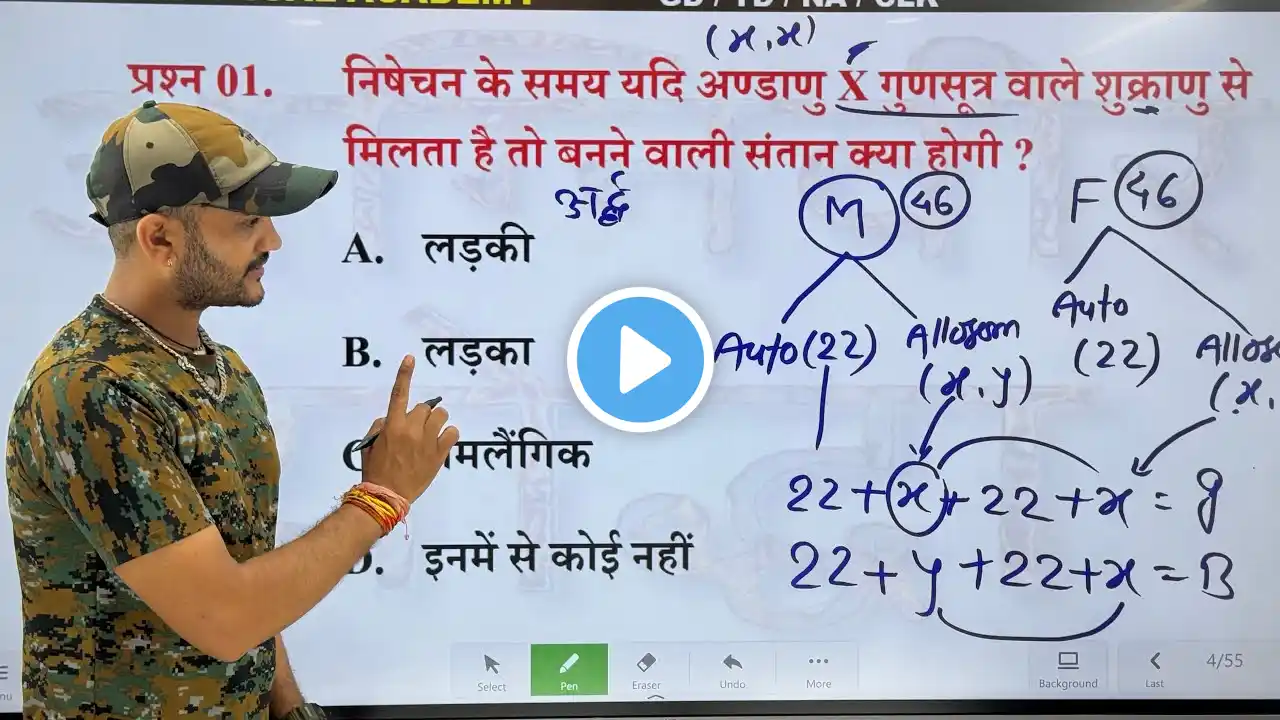 GD / TD / NA / CLK
(x, x)
प्रश्न 01. निषेचन के समय यदि अण्डाणु X गुणसूत्र वाले शुक्राणु से
मिलता है तो बनने वाली संतान क्या होगी ?
M 46
F 46
A. लड़की
Auto (22)
Allosom
(x, y)
Auto
(22)
(x,
B. लड़का
22 + x + 22 + x = g
22 + y + 22 + x = B
D. इनमें से कोई नहीं
Select Pen Eraser Undo More Background Last 4/55